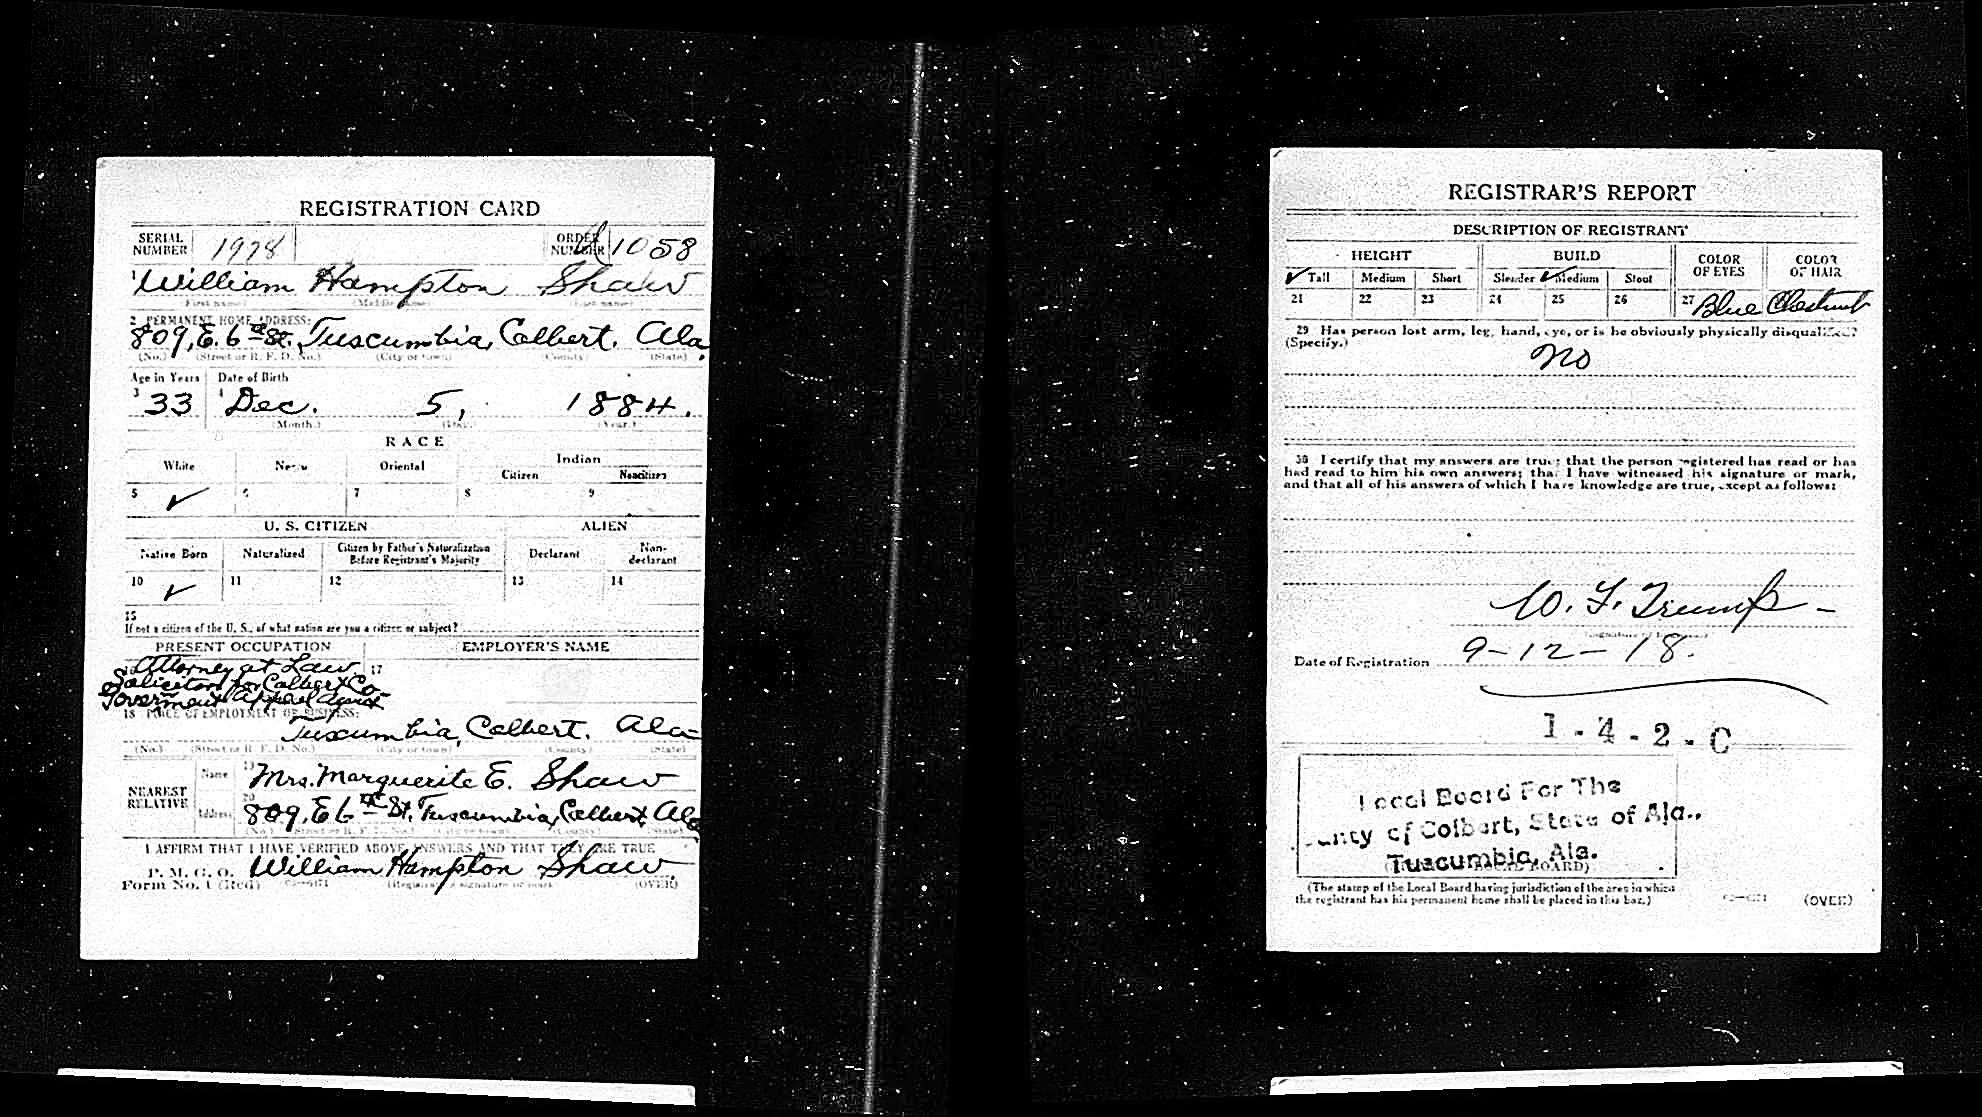 REGISTRATION CARD
SERIAL NUMBER 1978 ORDER NUMBER 1058
1 William Hampton Shaw
(First name) (Middle name) (Last name)
2 PERMANENT HOME ADDRESS:
809, E. 6th St. Tuscumbia, Colbert. Ala.
(No.) (Street or R. F. D. No.) (City or town) (County) (State)
Age in Years Date of Birth
3 33 4 Dec. 5, 1884.
(Month.) (Day.) (Year.)
RACE
White Negro Oriental Indian
Citizen Noncitizen
5 ✓ 6 7 8 9
U. S. CITIZEN ALIEN
Native Born Naturalized Citizen by Father's Naturalization Before Registrant's Majority Declarant Non-declarant
10 ✓ 11 12 13 14
15
If not a citizen of the U. S., of what nation are you a citizen or subject?
PRESENT OCCUPATION EMPLOYER'S NAME
16 Attorney at Law 17
Solicitor for Colbert Co-
Government Appeal Agent
18 PLACE OF EMPLOYMENT OR BUSINESS:
Tuscumbia, Colbert. Ala
(No.) (Street or R. F. D. No.) (City or town) (County) (State)
NEAREST RELATIVE Name 19 Mrs. Marguerite E. Shaw
Address 20 809, E 6th St. Tuscumbia, Colbert Ala
(No.) (Street or R. F. D. No.) (City or town) (County) (State)
I AFFIRM THAT I HAVE VERIFIED ABOVE ANSWERS AND THAT THEY ARE TRUE
P. M. G. O.
Form No. 1 (Red) William Hampton Shaw.
(Registrant's signature or mark) (OVER)
REGISTRAR'S REPORT
DESCRIPTION OF REGISTRANT
HEIGHT BUILD COLOR OF EYES COLOR OF HAIR
✓ Tall Medium Short Slender ✓ Medium Stout
21 22 23 24 25 26 27 Blue Chestnut
29 Has person lost arm, leg, hand, eye, or is he obviously physically disqualified?
(Specify.) no
30 I certify that my answers are true; that the person registered has read or has
had read to him his own answers; that I have witnessed his signature or mark,
and that all of his answers of which I have knowledge are true, except as follows:
W. F. Trump -
Date of Registration 9-12-18.
1-4-2-C
Local Board For The
County of Colbert, State of Ala.,
Tuscumbia, Ala.
(The stamp of the Local Board having jurisdiction of the area in which
the registrant has his permanent home shall be placed in this box.)
(OVER)